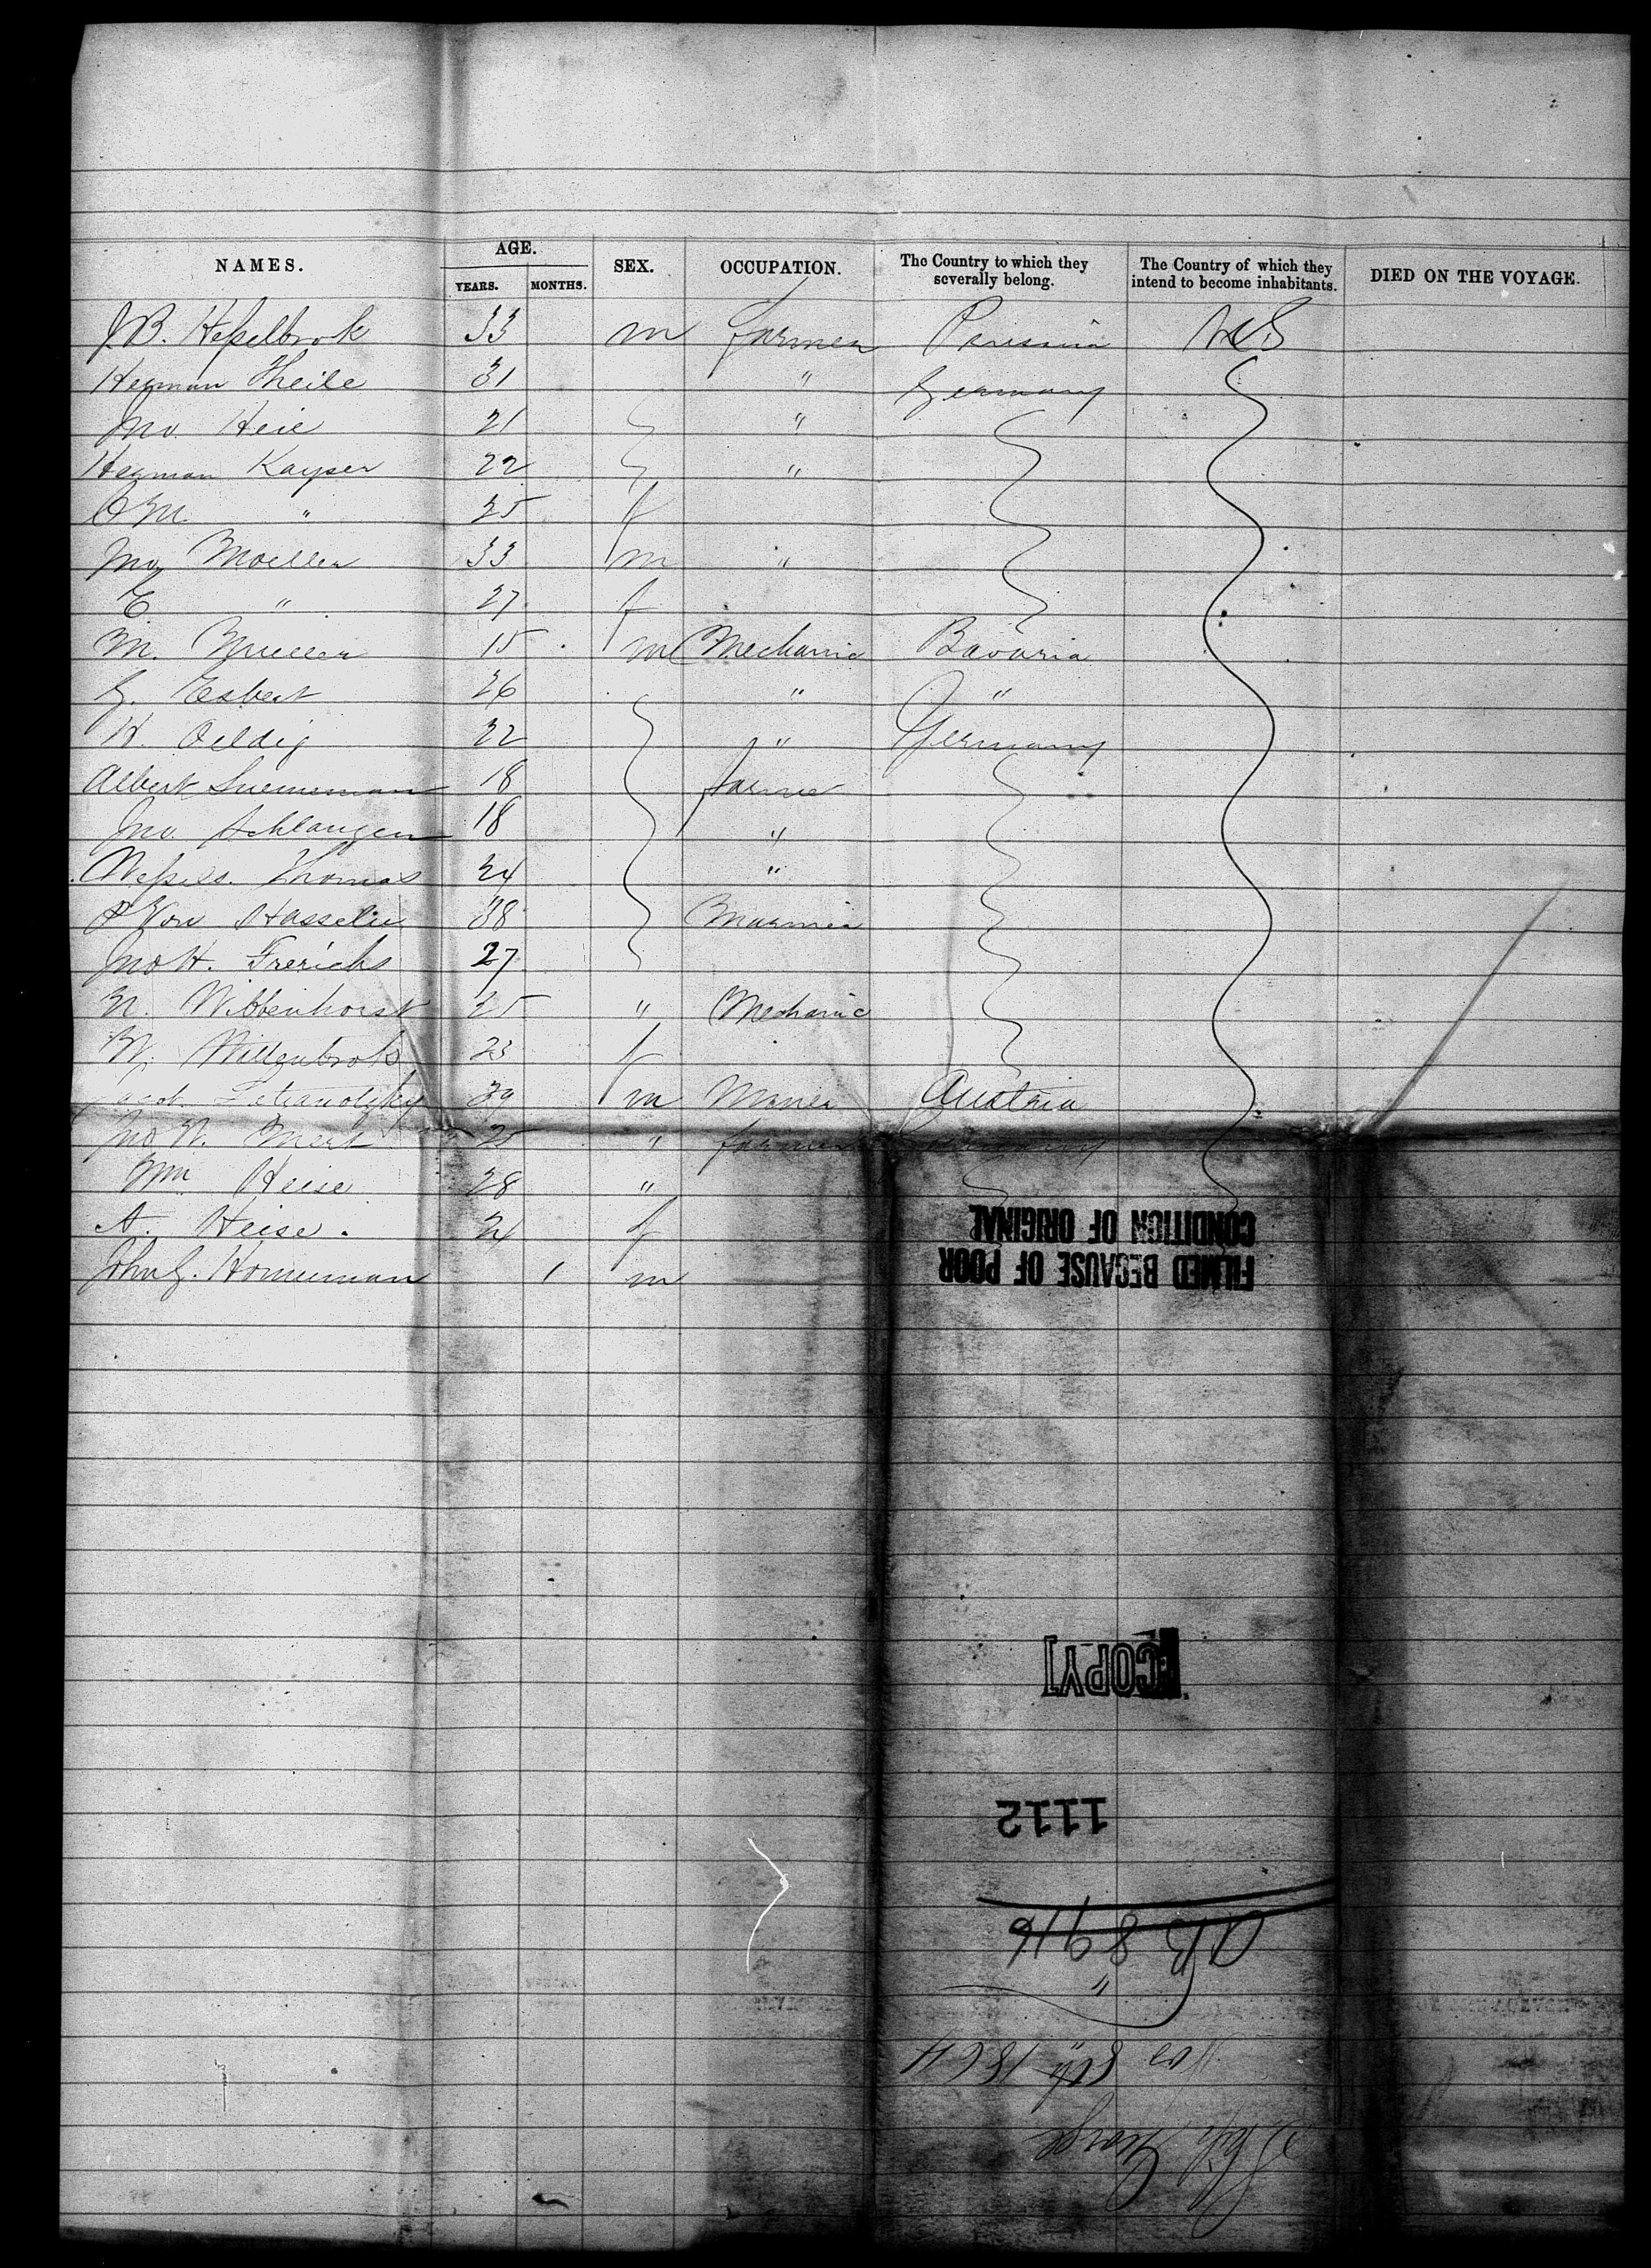 NAMES. AGE. YEARS. MONTHS. SEX. OCCUPATION. The Country to which they severally belong. The Country of which they intend to become inhabitants. DIED ON THE VOYAGE.
J.B. Heſselbrok 33 m farmer Prussia US
Herman Theile 31 " Germany
Jno. Heie 21 "
Herman Kayser 22 "
" 25 f
Jno Moeller 33 m "
E " 27 f
M. Mueller 15 m Mechanic Bavaria
G. Esbert 26 " "
H. Oeldig 22 " Germany
Albert 18 farmer
Jno. Schlangen 18 "
Thomas 24 "
Von 38
Jno H. Frerichs 27
N. Wibbenhorst 25 " Mechanic
Willenbrok 23 f
39 m Miner Austria
Jno 25 " farmer Germany
Wm Heise 28 "
A. Heise. 24 f
John G. Honneman 1 m
FILMED BECAUSE OF POOR
CONDITION OF ORIGINAL
[COPY]
1112
Nov 8th 1864
George